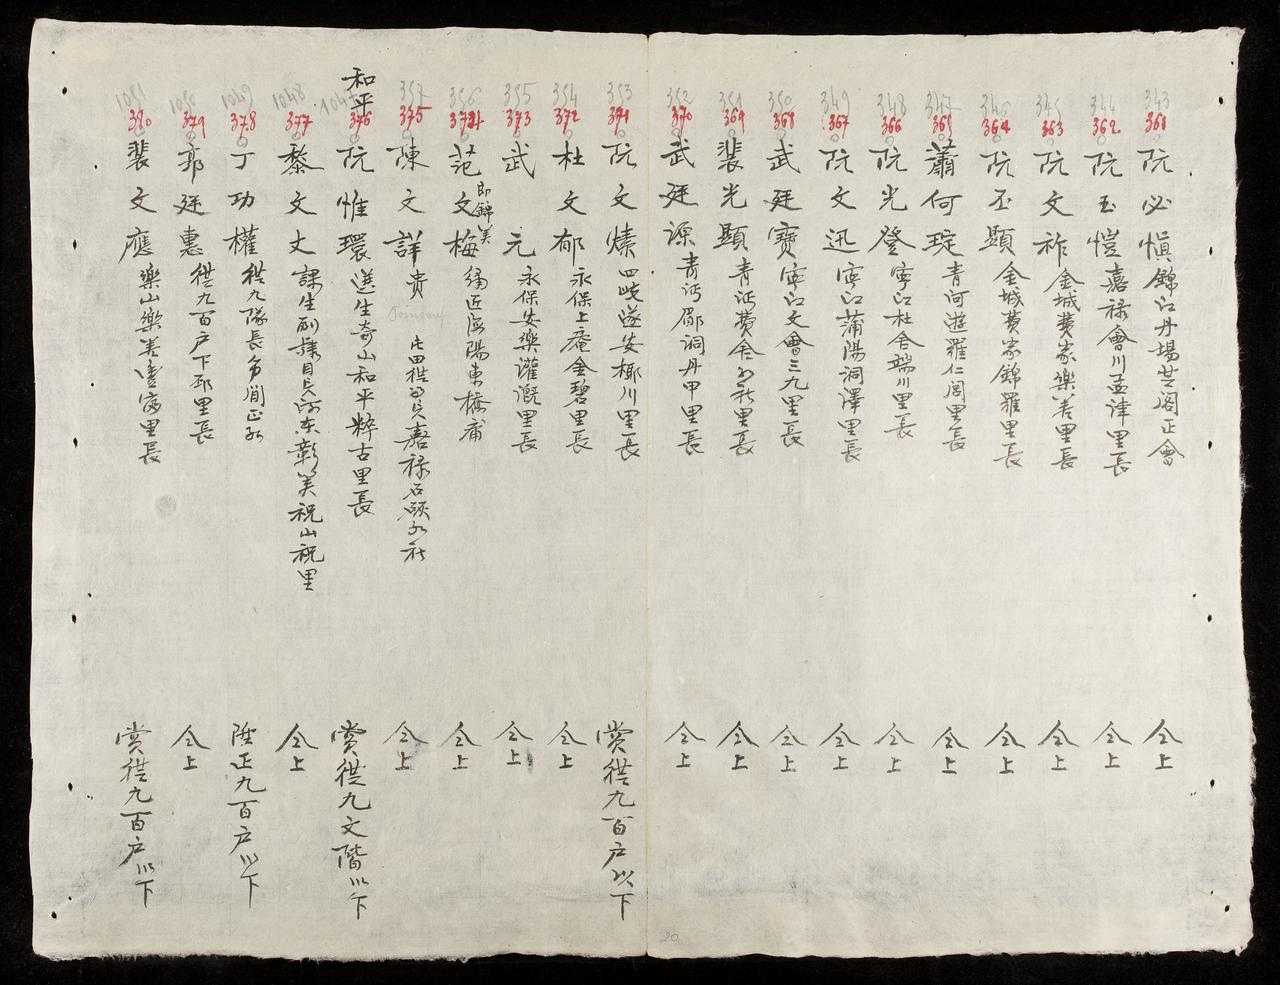 343
361
阮必愼 錦江丹場芸閣正會
仝上
344
362
阮玉愷 嘉禄會川孟津里長
仝上
345
363
阮文祚 金城費家樂善里長
仝上
346
364
阮丕顯 金城費家錦羅里長
仝上
347
365
蕭何琔 青河遊羅仁閣里長
仝上
348
366
阮光登 寧江杜舍瑞川里長
仝上
349
367
阮文迅 寧江蒲陽洞澤里長
仝上
350
368
武廷寶 寧江文會三九里長
仝上
351
369
裴光顯 青沔費舍 里長
仝上
352
370
武廷源 青沔鄢洞丹甲里長
仝上
353
371
阮文愫 四岐遂安椰川里長
賞從九百户以下
354
372
杜文郁 永保上庵金碧里長
仝上
355
373
武元 永保安樂灌溉里長
仝上
356
374
范文梅 即錦美 海陽東橋甫
仝上
357
375
陳文詳 貴 屯田從 嘉禄石 社
仝上
和平
1047
376
阮惟環 選生奇山和平粹古里長
賞從九文階以下
1048
377
黎文丈 課生 東彰美祝山祝里
仝上
1049
378
丁功權 從九隊長
陞正九百户以下
1050
379
郭廷惠 從九百户下邳里長
仝上
1051
380
裴文應 樂山樂善 里長
賞從九百户以下
20